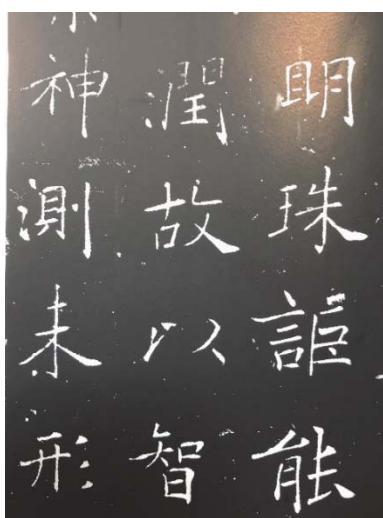 明珠詎能
潤故以智
神測未形